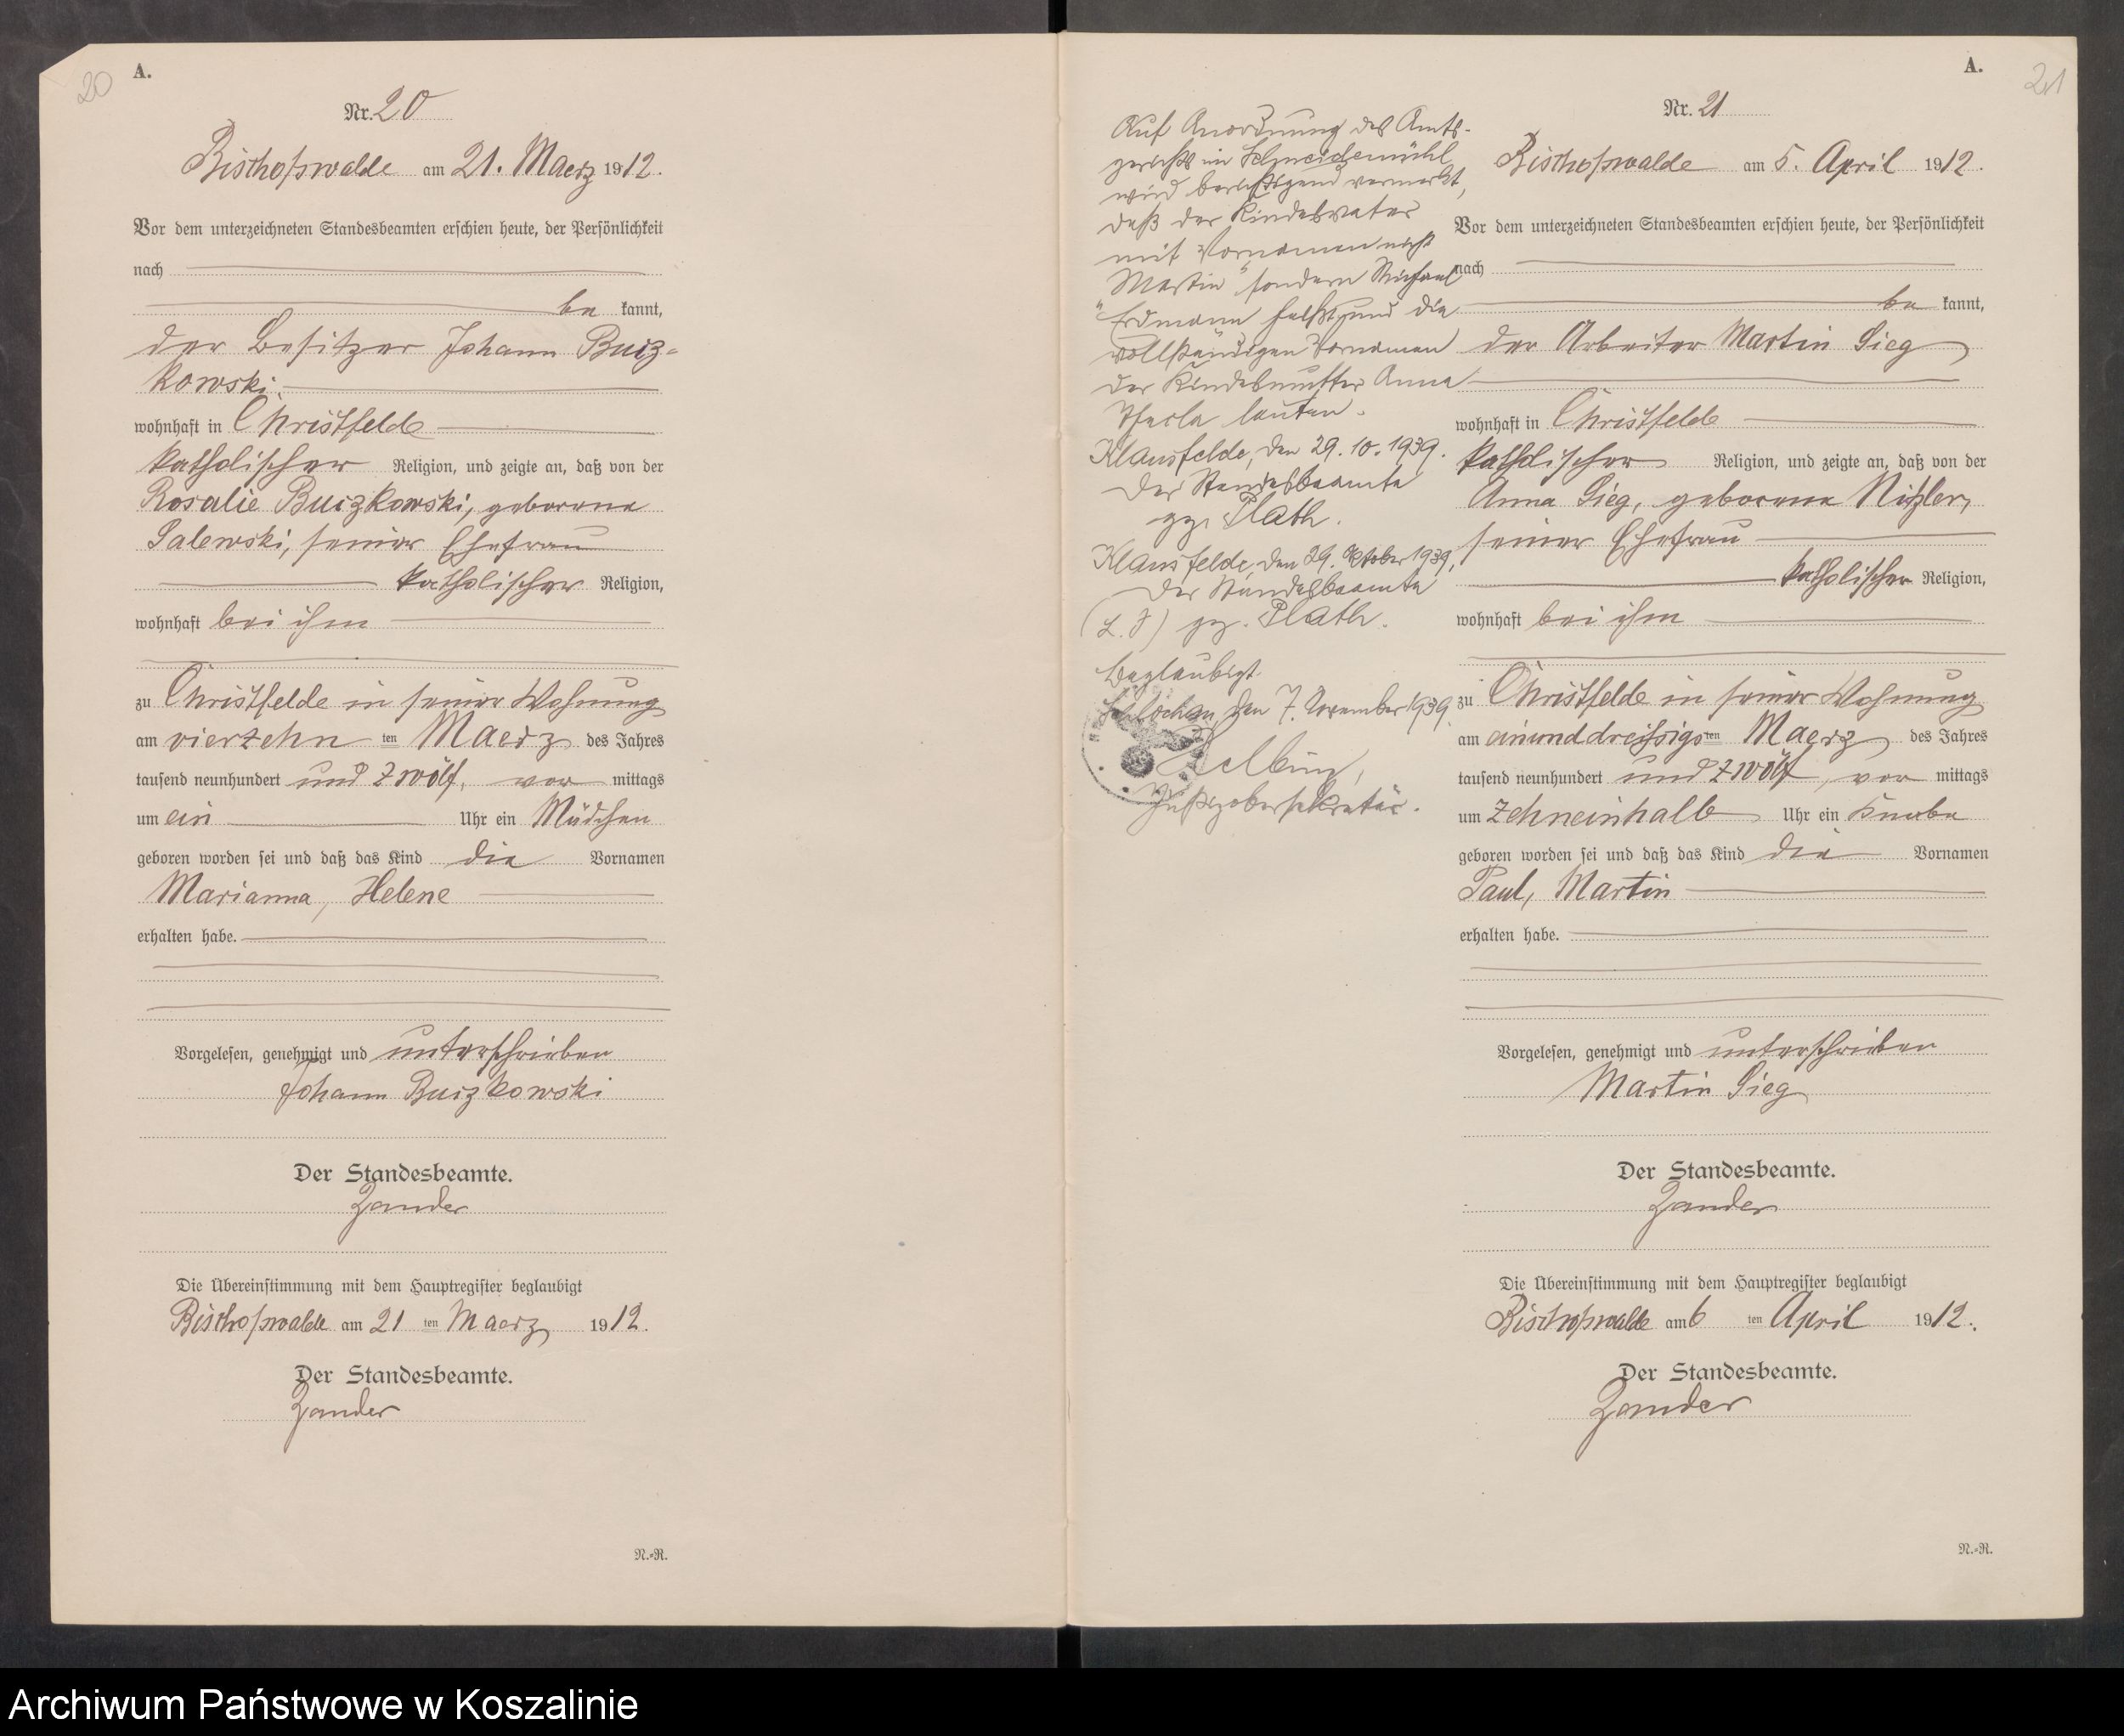 20
A.
Nr. 20
Bischofswalde am 21. Maerz 1912.
Vor dem unterzeichneten Standesbeamten erschien heute, der Persönlichkeit
nach
be kannt,
der Besitzer Johann Buiz-
kowski
wohnhaft in Christfelde
katholischer Religion, und zeigte an, daß von der
Rosalie Buizkowski, geborene
Salewski, seiner Ehefrau
katholischer Religion,
wohnhaft bei ihm
zu Christfelde in seiner Wohnung
am vierzehn ten Maerz des Jahres
tausend neunhundert und zwölf, vor mittags
um ein Uhr ein Mädchen
geboren worden sei und daß das Kind die Vornamen
Marianna, Helene
erhalten habe.
Vorgelesen, genehmigt und unterschrieben
Johann Buizkowski
Der Standesbeamte.
Zander
Die Übereinstimmung mit dem Hauptregister beglaubigt
Bischofswalde am 21 ten Maerz 1912.
Der Standesbeamte.
Zander
N.-R.
Auf Anordnung des Amts-
gerichts in Schneidemühl
wird berichtigend vermerkt,
daß der Kindesvater
mit Vornamen nicht
"Martin" sondern Michael
Erdmann heißt und die
vollständigen Vornamen
der Kindesmutter Anna
Thecla lauten.
Klausfelde, den 29.10.1939.
Der Standesbeamte
gz. Plath.
Klausfelde, den 29. Oktober 1939.
Der Standesbeamte
(L. S) gz. Plath.
Beglaubigt
Schlochau, den 7. November 1939
Justizobersekretär.
A.
21
Nr. 21
Bischofswalde am 5. April 1912.
Vor dem unterzeichneten Standesbeamten erschien heute, der Persönlichkeit
nach
be kannt,
der Arbeiter Martin Sieg
wohnhaft in Christfelde
katholischer Religion, und zeigte an, daß von der
Anna Sieg, geborene Nitzler,
seiner Ehefrau
katholischer Religion,
wohnhaft bei ihm
zu Christfelde in seiner Wohnung
am einunddreißigsten Maerz des Jahres
tausend neunhundert und zwölf, vor mittags
um zehneinhalb Uhr ein Knabe
geboren worden sei und daß das Kind die Vornamen
Paul, Martin
erhalten habe.
Vorgelesen, genehmigt und unterschrieben
Martin Sieg
Der Standesbeamte.
Zander
Die Übereinstimmung mit dem Hauptregister beglaubigt
Bischofswalde am 6 ten April 1912.
Der Standesbeamte.
Zander
N.-R.
Archiwum Państwowe w Koszalinie